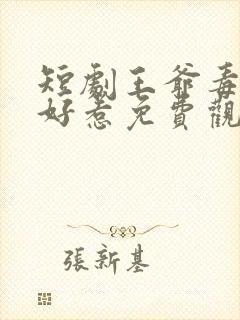 短劇王爺毒
好惹免費觀
張新基